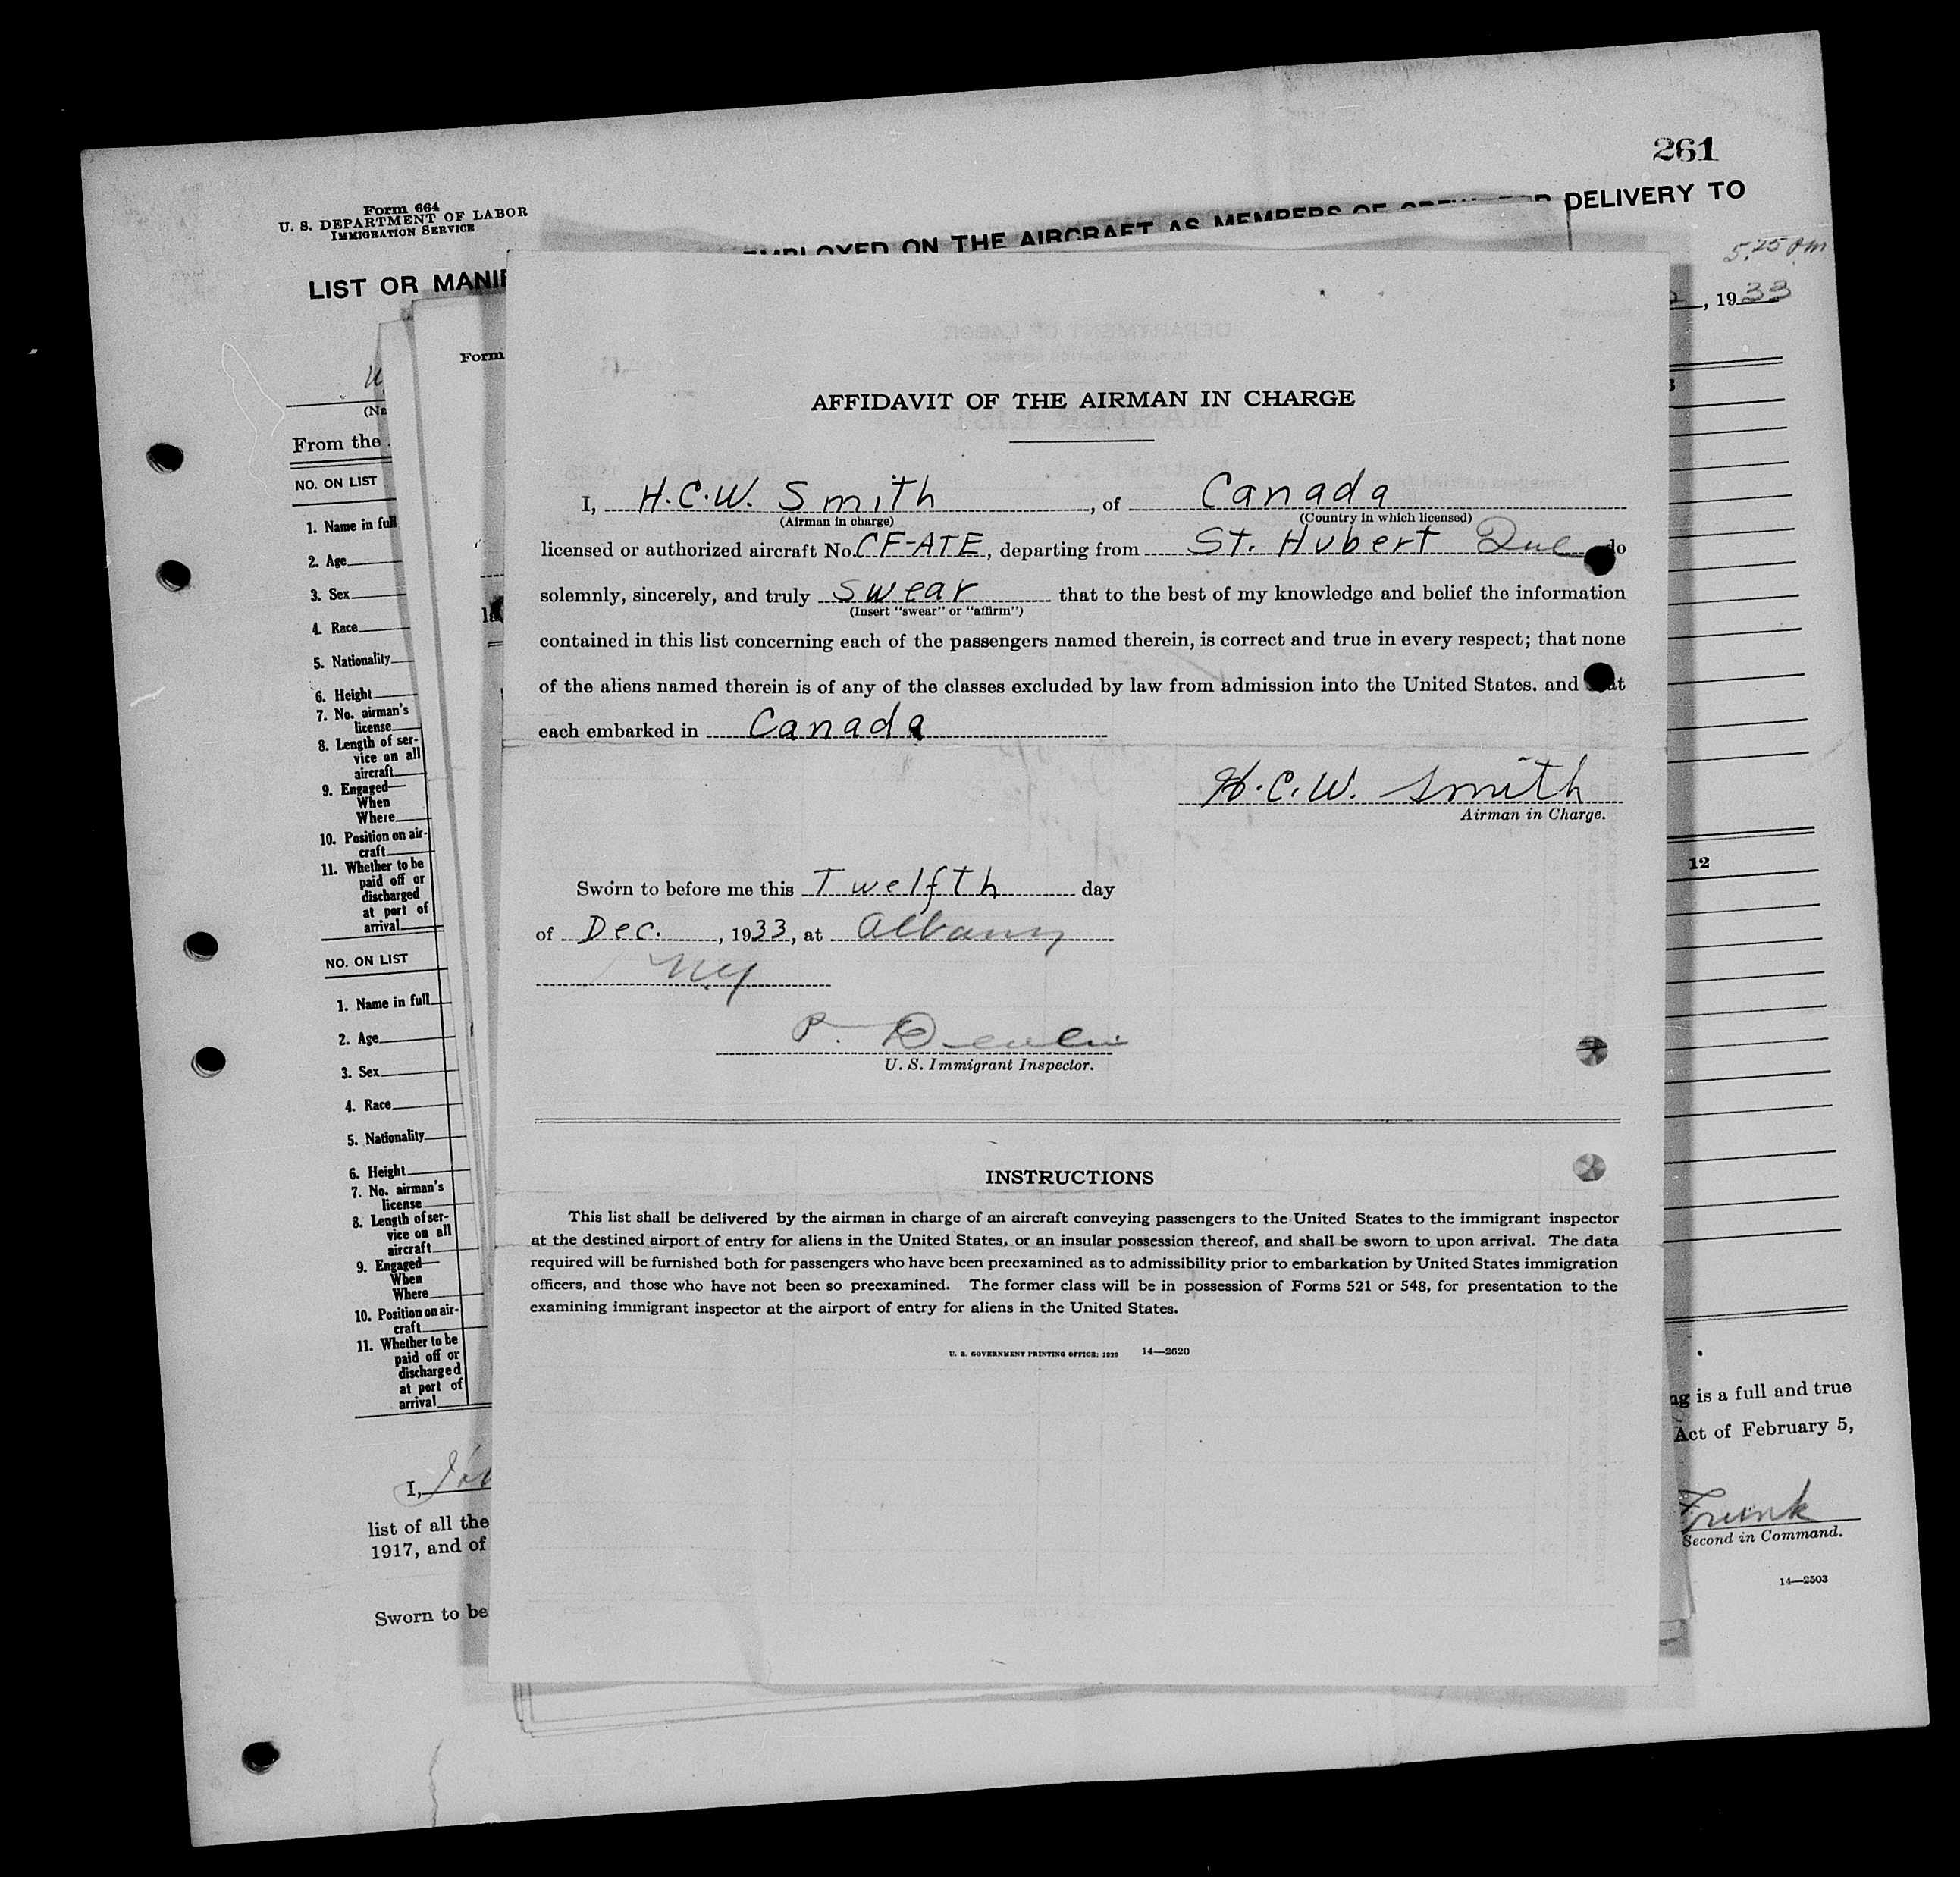 261
Form 664
U. S. DEPARTMENT OF LABOR
IMMIGRATION SERVICE
LIST OR MANIF
EMPLOYED ON THE AIRCRAFT AS MEMBERS OF CREW FOR DELIVERY TO
, 1933
(Na
From the
Form
NO. ON LIST
1. Name in full
2. Age
3. Sex
4. Race
5. Nationality
6. Height
7. No. airman's
license
8. Length of ser-
vice on all
aircraft
9. Engaged—
When
Where
10. Position on air-
craft
11. Whether to be
paid off or
discharged
at port of
arrival
NO. ON LIST
1. Name in full
2. Age
3. Sex
4. Race
5. Nationality
6. Height
7. No. airman's
license
8. Length of ser-
vice on all
aircraft
9. Engaged—
When
Where
10. Position on air-
craft
11. Whether to be
paid off or
discharged
at port of
arrival
I,
list of all the
1917, and of
Sworn to be
AFFIDAVIT OF THE AIRMAN IN CHARGE
I, H.C.W. Smith, of Canada
(Airman in charge) (Country in which licensed)
licensed or authorized aircraft No. CF-ATE, departing from St. Hubert Que do
solemnly, sincerely, and truly swear that to the best of my knowledge and belief the information
(Insert "swear" or "affirm")
contained in this list concerning each of the passengers named therein, is correct and true in every respect; that none
of the aliens named therein is of any of the classes excluded by law from admission into the United States. and that
each embarked in Canada
H.C.W. Smith
Airman in Charge.
Sworn to before me this Twelfth day
of Dec., 1933, at Albany
NY
P.
U. S. Immigrant Inspector.
INSTRUCTIONS
This list shall be delivered by the airman in charge of an aircraft conveying passengers to the United States to the immigrant inspector
at the destined airport of entry for aliens in the United States, or an insular possession thereof, and shall be sworn to upon arrival. The data
required will be furnished both for passengers who have been preexamined as to admissibility prior to embarkation by United States immigration
officers, and those who have not been so preexamined. The former class will be in possession of Forms 521 or 548, for presentation to the
examining immigrant inspector at the airport of entry for aliens in the United States.
U. S. GOVERNMENT PRINTING OFFICE: 1929 14—2620
12
ng is a full and true
Act of February 5,
Second in Command.
14—2503